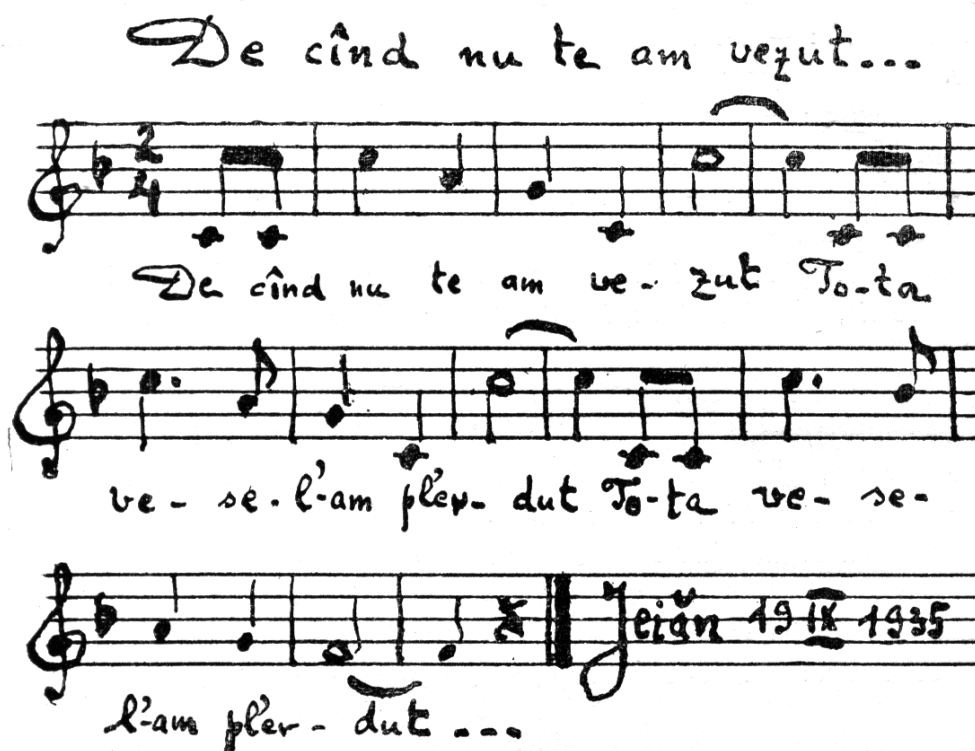 De cînd nu te am vezut...
2/4
De cînd nu te am ve- zut To-ta
ve- se- l'-am pl'er- dut To-ta ve- se-
Jeiăn 19 IX 1935
l'-am pl'er- dut ...